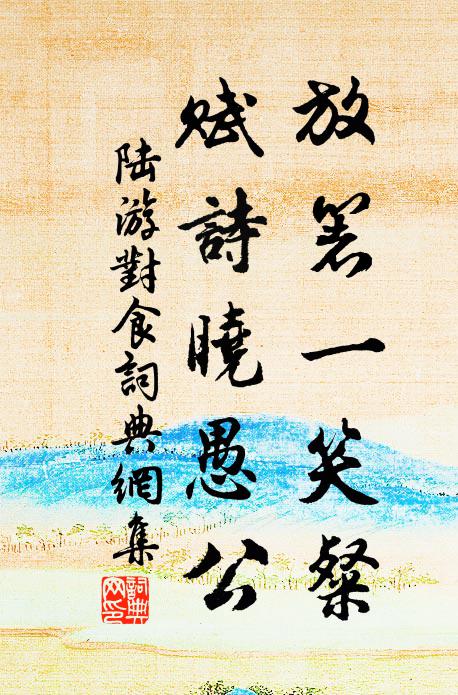 放箸一笑粲
賦詩曉愚公
陸游對食詞典網集
詞典网印